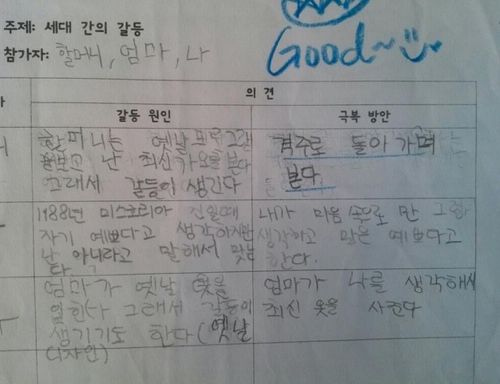 주제: 세대 간의 갈등
Good~
참가자: 할머니, 엄마, 나
의 견
갈등 원인
극복 방안
할머니는 옛날 프로그램
보고 난 최신가요를 본다
그래서 갈등이 생긴다
격주로 돌아가며
본다.
1988년 미스코리아
자기 예쁘다고 생각하지만
난 아니라고 말해서
다.
나가 마음속으로만 그렇
생각하고 말은 예쁘다고
한다.
엄마가 옛날 옷을
입힌다 그래서 갈등이
생기기도 한다(옛날
디자인)
엄마가 나를 생각해서
최신 옷을 사준다